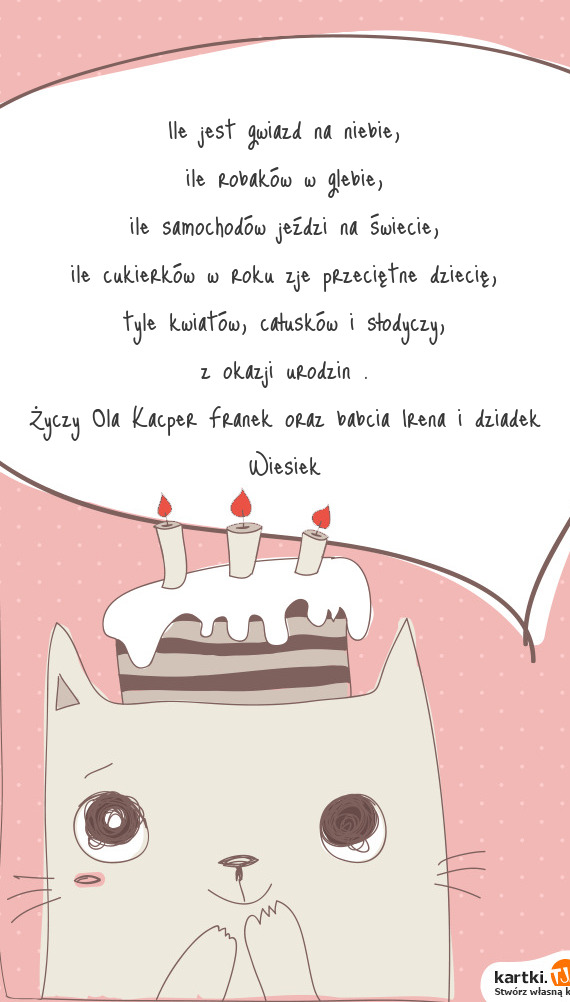 Ile jest gwiazd na niebie,
ile robaków w glebie,
ile samochodów jeździ na świecie,
ile cukierków w roku zje przeciętne dziecię,
tyle kwiatów, całusków i słodyczy,
z okazji urodzin .
Życzy Ola Kacper Franek oraz babcia Irena i dziadek
Wiesiek
kartki.TJ
Stwórz własną k